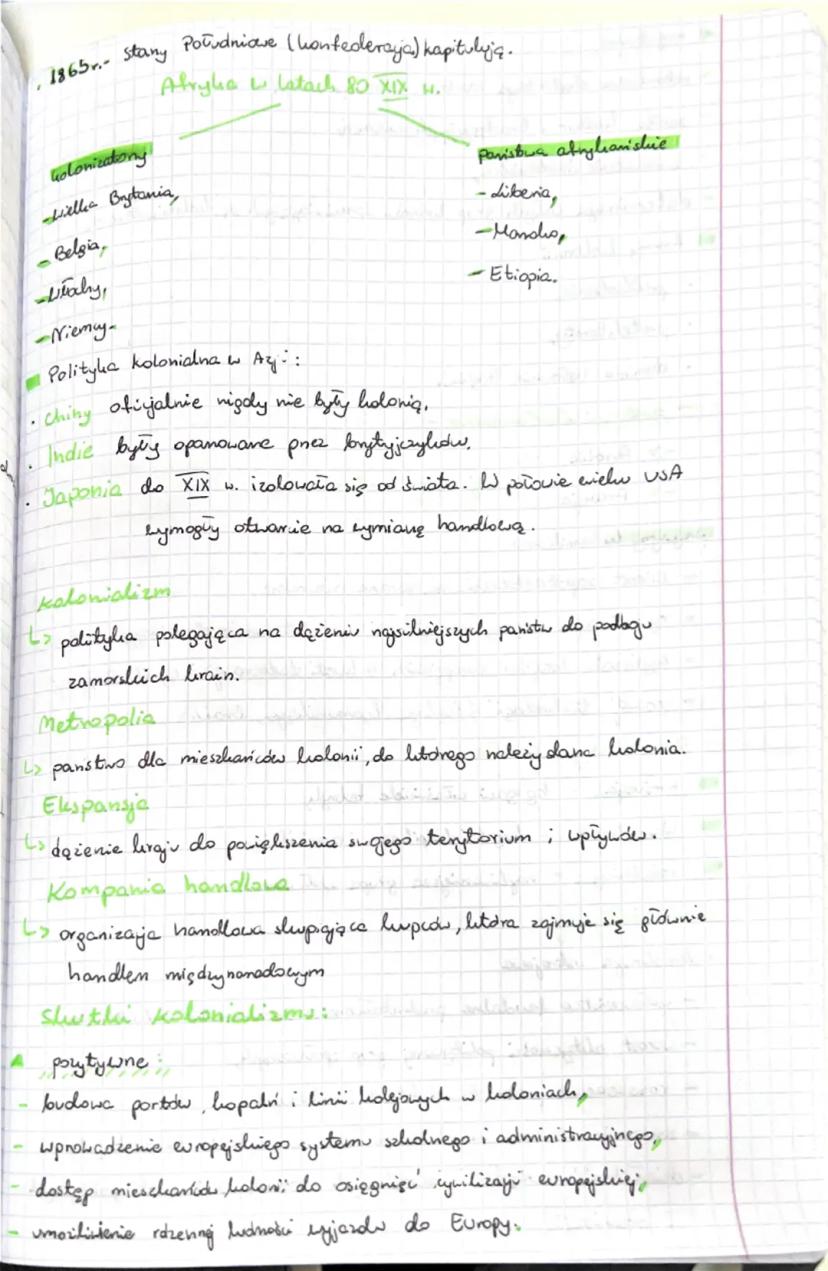 . 1865r.- stany Południowe (konfederacja) kapitulują.
Afryka w latach 80 XIX w.
kolonizatorzy
- Wielka Brytania,
- Belgia,
- Włochy,
- Niemcy.
państwa afrykańskie
- Liberia,
- Maroko,
- Etiopia.
Polityka kolonialna w Azji:
. Chiny oficjalnie nigdy nie były kolonią.
. Indie były opanowane przez brytyjczyków.
. Japonia do XIX w. izolowała się od świata. W połowie wieku USA
wymogły otwarcie na wymianę handlową.
kolonializm
↳ polityka polegająca na dążeniu najsilniejszych państw do podboju
zamorskich krain.
Metropolia
↳ państwo dla mieszkańców kolonii, do którego należy dana kolonia.
Ekspansja
↳ dążenie kraju do powiększenia swojego terytorium i wpływów.
Kompania handlowa
↳ organizacja handlowa skupiająca kupców, która zajmuje się głównie
handlem międzynarodowym
Skutki kolonializmu:
pozytywne:
- budowa portów, kopalń i linii kolejowych w koloniach,
- wprowadzenie europejskiego systemu szkolnego i administracyjnego,
- dostęp mieszkańców kolonii do osiągnięć cywilizacji europejskiej,
- umożliwienie rdzennej ludności wyjazdu do Europy.